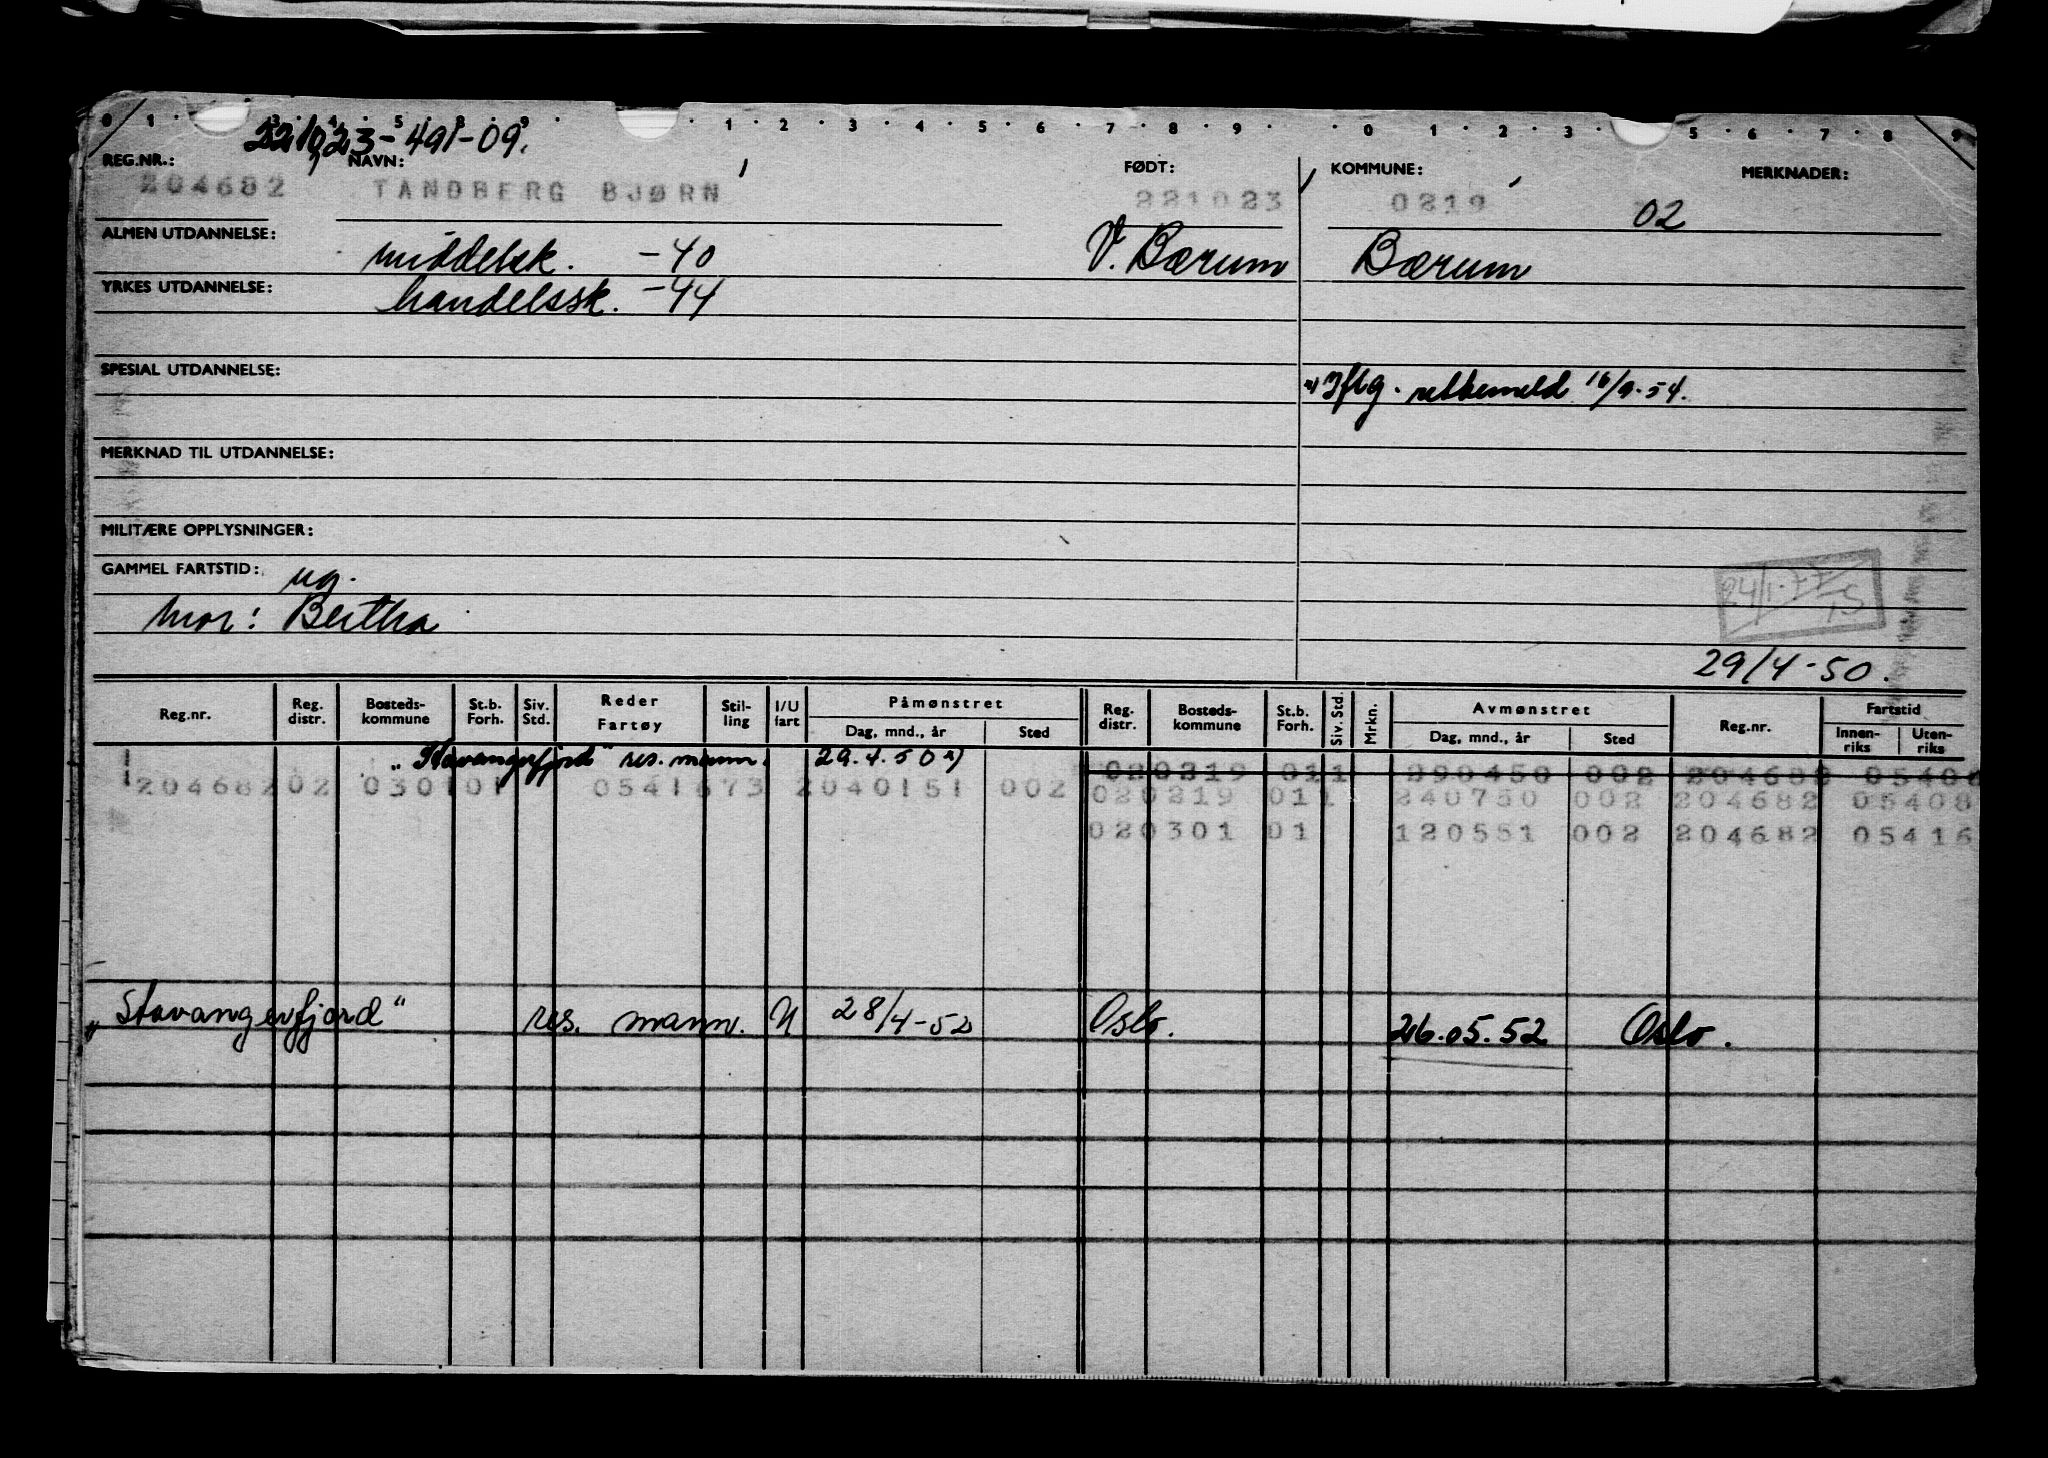 0 1 3 4 5 8 9 1 2 3 4 5 6 7 8 9 0 1 2 3 5 6 7 8 9
221023-491-09.
REG.NR.: NAVN: FØDT: KOMMUNE: MERKNADER:
204682 TANDBERG BJØRN 221023 0219 02
ALMEN UTDANNELSE: middelsk. -40 V. Bærum Bærum
YRKES UTDANNELSE: handelssk. -44
SPESIAL UTDANNELSE:
x) Iflg. rettemeld 16/9-54.
MERKNAD TIL UTDANNELSE:
MILITÆRE OPPLYSNINGER:
GAMMEL FARTSTID: ug.
24/1-77
mor: Bertha
29/4-50.
Reg.nr. Reg. distr. Bosteds-kommune St.b. Forh. Siv. Std. Reder Fartøy Stil-ling I/U fart Påmønstret Dag, mnd., år Sted Reg. distr. Bosteds-kommune St.b. Forh. Siv. Std. Mrkn. Avmønstret Dag, mnd., år Sted Reg.nr. Fartstid Innen-riks Uten-riks
"Stavangerfjord" res. mann. 29.4.50 x)
020219 011 290450 002 204682 05408
204682 02 030101 0541673 2040151 002 020219 011 240750 002 204682 05408
020301 01 120551 002 204682 05416
"Stavangerfjord" res. mann. U 28/4-52 Oslo. 26.05.52 Oslo.